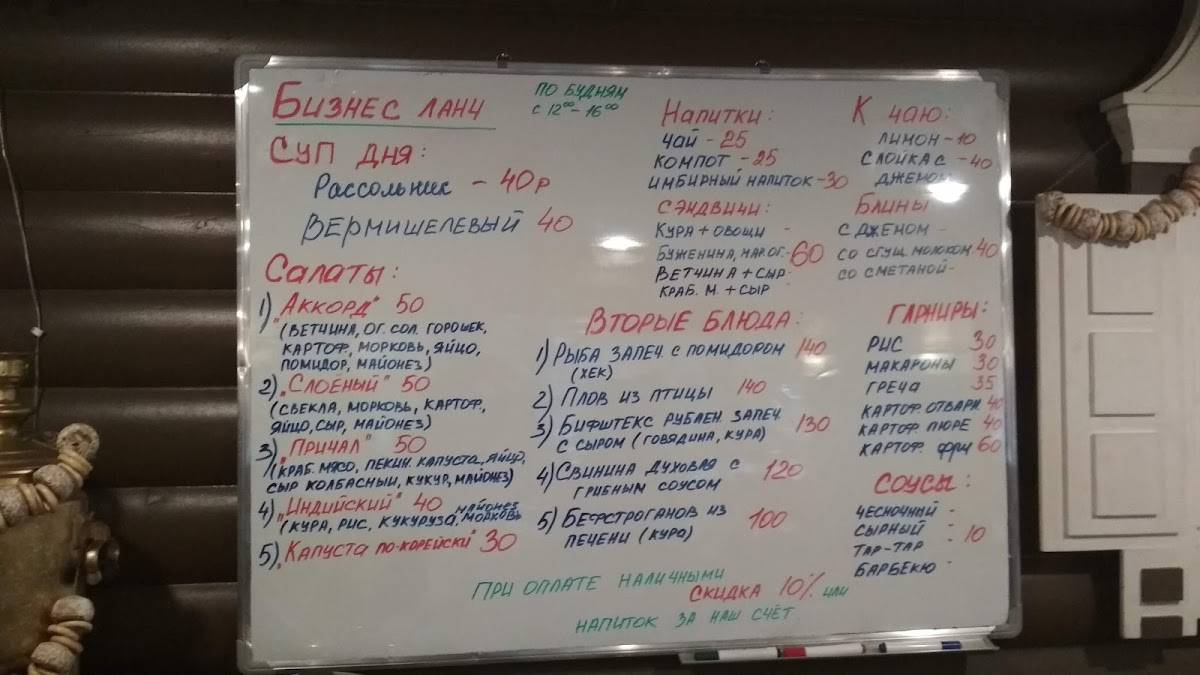 БИЗНЕС ЛАНЧ
ПО БУДНЯМ
С 12⁰⁰ - 16⁰⁰
СУП ДНЯ:
РАССОЛЬНИК - 40р
ВЕРМИШЕЛЕВЫЙ 40
САЛАТЫ:
1) „АККОРД" 50
(ВЕТЧИНА, ОГ. СОЛ. ГОРОШЕК,
КАРТОФ, МОРКОВЬ, ЯЙЦО,
ПОМИДОР, МАЙОНЕЗ)
2) „СЛОЕНЫЙ" 50
(СВЕКЛА, МОРКОВЬ, КАРТОФ,
ЯЙЦО, СЫР, МАЙОНЕЗ)
3) „ПРИЧАЛ" 50
(КРАБ. МЯСО, ПЕКИН. КАПУСТА, ЯЙЦО,
СЫР КОЛБАСНЫЙ, КУКУР, МАЙОНЕЗ)
4) „ИНДИЙСКИЙ" 40
(КУРА, РИС, КУКУРУЗА, МАЙОНЕЗ, МОРКОВЬ
5) „КАПУСТА ПО-КОРЕЙСКИ" 30
НАПИТКИ:
ЧАЙ - 25
КОМПОТ - 25
ИМБИРНЫЙ НАПИТОК - 30
К ЧАЮ:
ЛИМОН - 10
СЛОЙКА С - 40
ДЖЕМОМ
СЭНДВИЧИ:
КУРА + ОВОЩИ -
БУЖЕНИНА, МАР. ОГ. - 60
ВЕТЧИНА + СЫР -
КРАБ. М. + СЫР -
БЛИНЫ
С ДЖЕМОМ -
СО СГУЩ. МОЛОКОМ - 40
СО СМЕТАНОЙ -
ВТОРЫЕ БЛЮДА:
1) РЫБА ЗАПЕЧ. С ПОМИДОРОМ 140
(ХЕК)
2) ПЛОВ ИЗ ПТИЦЫ 140
3) БИФШТЕКС РУБЛЕН. ЗАПЕЧ.
С СЫРОМ (ГОВЯДИНА, КУРА) 130
4) СВИНИНА ДУХОВАЯ С
ГРИБНЫМ СОУСОМ 120
5) БЕФСТРОГАНОВ ИЗ
ПЕЧЕНИ (КУРА) 100
ГАРНИРЫ:
РИС 30
МАКАРОНЫ 30
ГРЕЧА 35
КАРТОФ. ОТВАРН. 40
КАРТОФ. ПЮРЕ 40
КАРТОФ. ФРИ 60
СОУСЫ:
ЧЕСНОЧНЫЙ -
СЫРНЫЙ -
ТАР-ТАР - 10
БАРБЕКЮ -
ПРИ ОПЛАТЕ НАЛИЧНЫМИ
СКИДКА 10% ИЛИ
НАПИТОК ЗА НАШ СЧЁТ